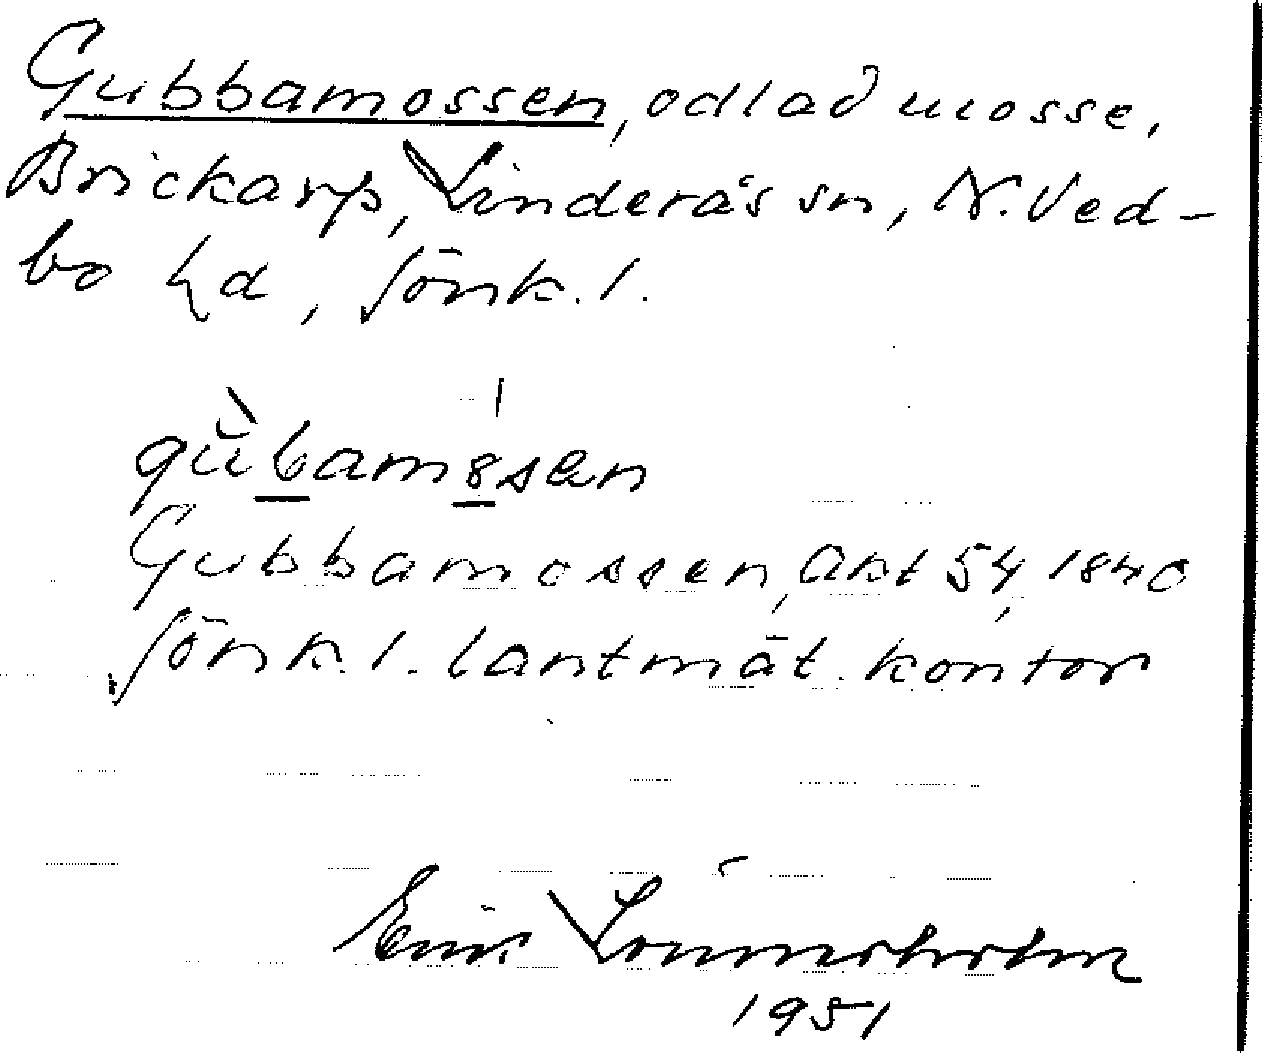 Gubbamossen, odlad mosse,
Brickarp, Linderås sn, N. Ved-
bo hd, Jönk. l.
gùbamåsen
Gubbamossen, Akt 54, 1840
Jönk. l. lantmät. kontor
Erik Lönnerholm
1951